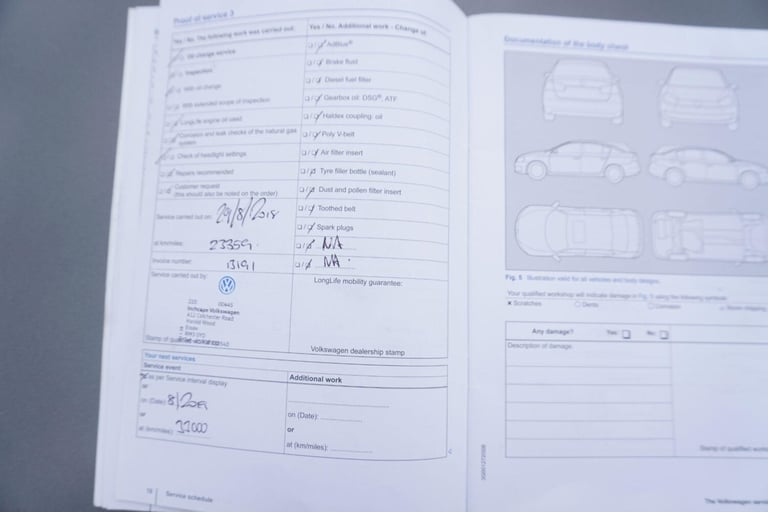 Proof of service 3
Yes / No. The following work was carried out:
Oil change service
Inspection
With oil change
With extended scope of inspection
LongLife engine oil used
Corrosion and leak checks of the natural gas
system
Check of headlight settings
Repairs recommended
Customer request
(this should also be noted on the order)
Service carried out on: 29/8/2018
at km/miles: 23359
Invoice number: 13191
Service carried out by:
Inchcape Volkswagen
A12 Colchester Road
Harold Wood
Essex
Yes / No. Additional work - Change of:
AdBlue®
Brake fluid
Diesel fuel filter
Gearbox oil: DSG®, ATF
Haldex coupling: oil
Poly V-belt
Air filter insert
Tyre filler bottle (sealant)
Dust and pollen filter insert
Toothed belt
Spark plugs
NA
NA
LongLife mobility guarantee:
Volkswagen dealership stamp
Your next services
Service event
as per Service interval display
or
on (Date): 8/2019
or
at (km/miles):
Additional work
on (Date):
or
at (km/miles):
Service schedule
Documentation of the body check
Fig. 5 Illustration valid for all vehicles and body designs.
Your qualified workshop will indicate damage in Fig. 5 using the following symbols:
Scratches
Dents
Corrosion
Any damage? Yes: No:
Description of damage:
Stamp of qualified
The Volkswagen